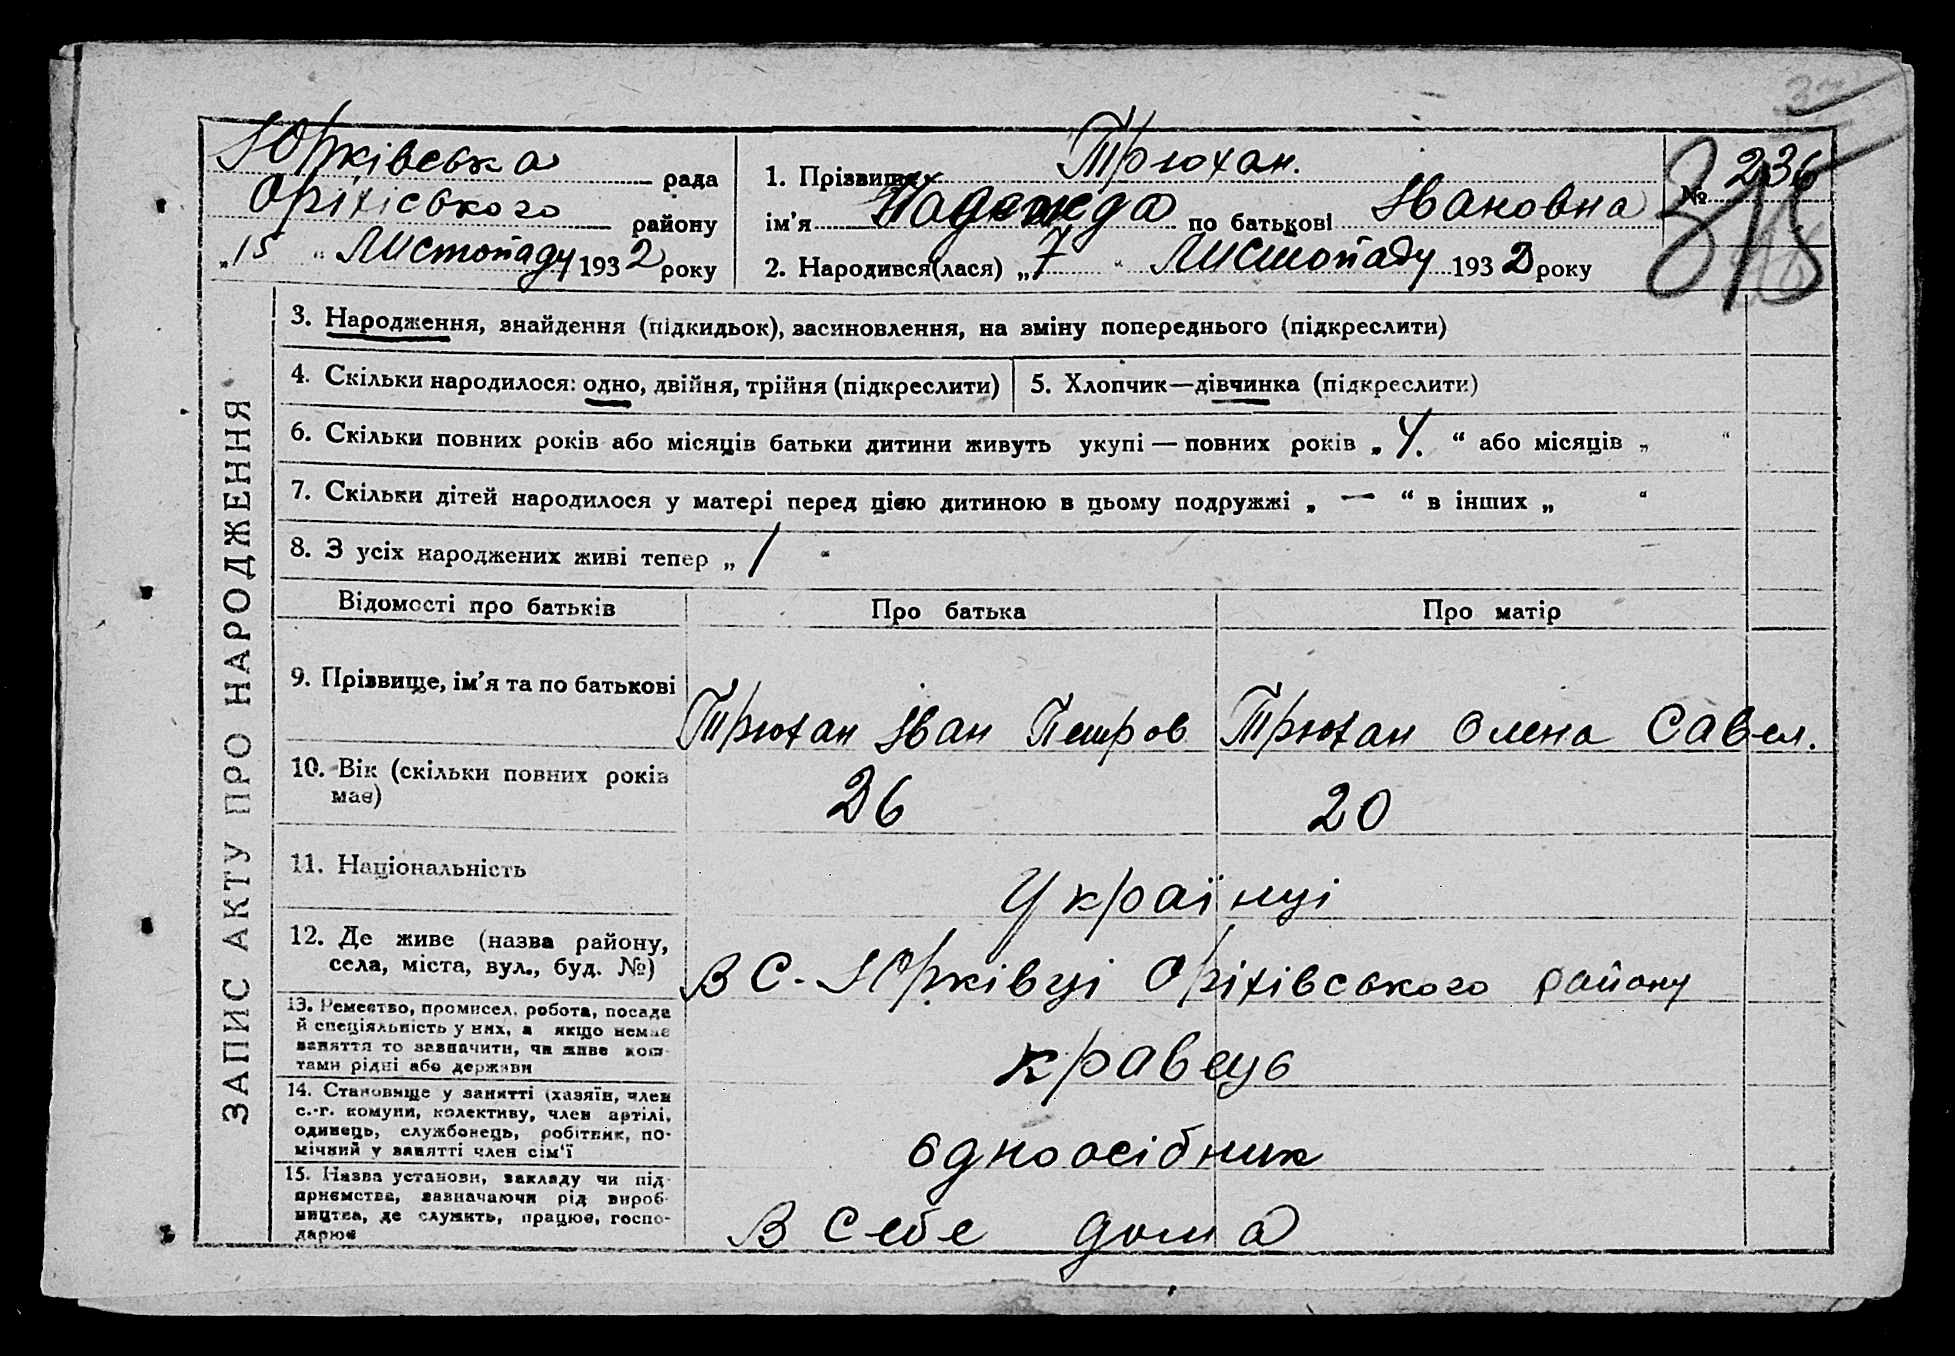 Юрківська рада
Оріхіського району
„15 “ Листопаду 1932 року
1. Прізвище Трюхан.
ім’я Надежда по батькові Івановна
2. Народився(лася) „7 “ Листопаду 1932 року
№ 236
315
ЗАПИС АКТУ ПРО НАРОДЖЕННЯ
3. Народження, знайдення (підкидьок), засиновлення, на зміну попереднього (підкреслити)
4. Скільки народилося: одно, двійня, трійня (підкреслити)
5. Хлопчик—дівчинка (підкреслити)
6. Скільки повних років або місяців батьки дитини живуть укупі — повних років „ 4. “ або місяців „ “
7. Скільки дітей народилося у матері перед цією дитиною в цьому подружжі „ — “ в інших „ “
8. З усіх народжених живі тепер „ 1 “
Відомості про батьків Про батька Про матір
9. Прізвище, ім’я та по батькові Трюхан Іван Петров Трюхан Олена Савел.
10. Вік (скільки повних років
має) 26 20
11. Національність Українці
12. Де живе (назва району,
села, міста, вул., буд. №) В С. Юрківці Оріхівського району
13. Ремество, промисел, робота, посада
й спеціяльність у них, а якщо немає
заняття то зазначити, чи живе кош-
тами рідні або держави кравець
14. Становище у занятті (хазяїн, член
с.-г. комуни, колективу, член артілі,
одинець, службовець, робітник, по-
мічний у занятті член сім’ї одноосібник
15. Назва установи, закладу чи під-
приємства, зазначаючи рід вироб-
ництва, де служить, працює, госпо-
дарює В себе дома